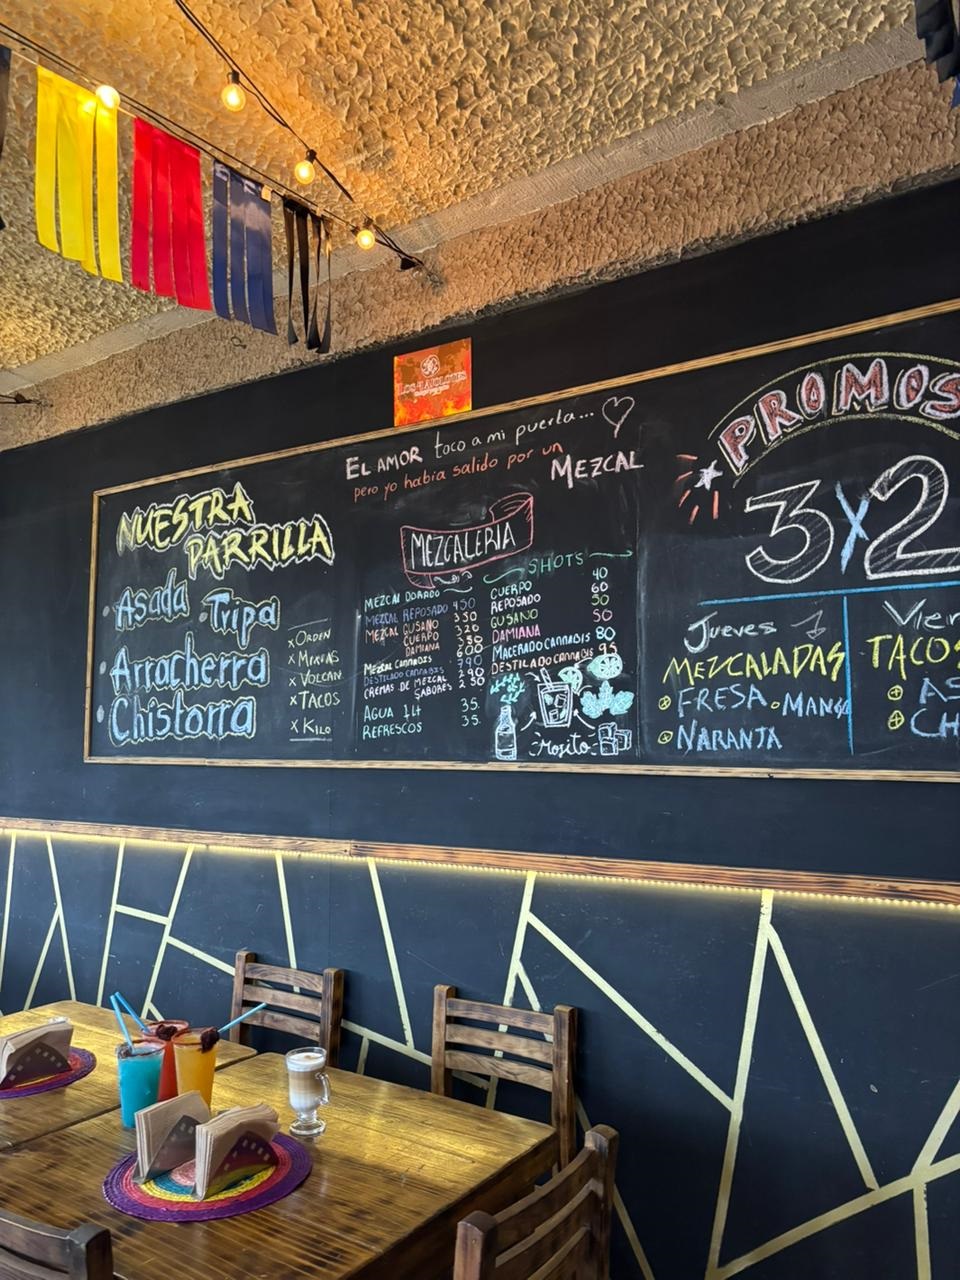 LOS 4 AJOLOTES
EL AMOR toco a mi puerta...
pero yo habia salido por un
MEZCAL
NUESTRA
PARRILLA
Asada
Tripa
Arracherra
Chistorra
x ORDEN
x MEDIAS
x VOLCAN
x TACOS
x KILO
MEZCALERIA
MEZCAL DORADO
MEZCAL REPOSADO 450
MEZCAL GUSANO 350
CUERPO 320
DAMIANA 380
MEZCAL CANNABIS 600
DESTILADO CANNABIS 790
CREMAS DE MEZCAL 290
SABORES 250
AGUA 1Lt 35.
REFRESCOS 35.
SHOTS
CUERPO 40
REPOSADO 60
GUSANO 50
DAMIANA 50
MACERADO CANNABIS 80
DESTILADO CANNABIS 95
Mojito
PROMOS
3X2
Jueves
MEZCALADAS
FRESA • MANGO
NARANJA
Vier
TACOS
AS
CH